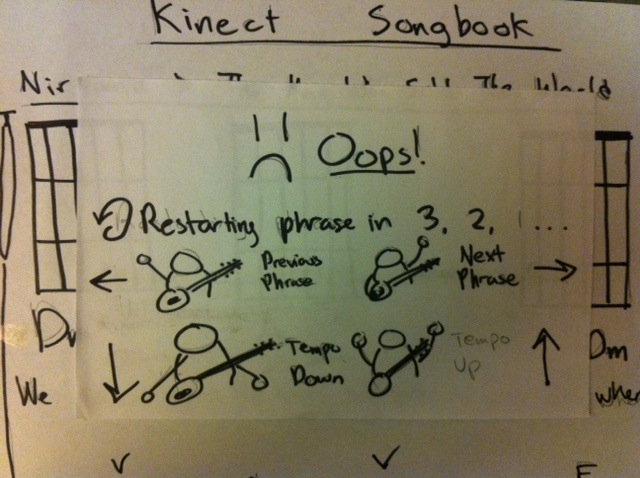 Kinect Songbook
Nir The World
Oops!
Restarting phrase in 3, 2, 1 ...
Previous Phrase
Next Phrase
Tempo Down
Tempo Up
Dm
We
when